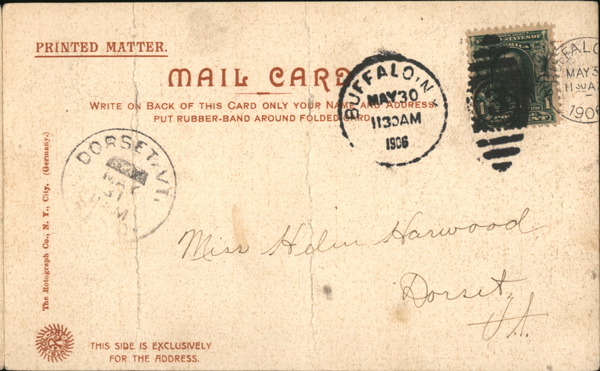 PRINTED MATTER.
MAIL CARD
WRITE ON BACK OF THIS CARD ONLY YOUR NAME AND ADDRESS
PUT RUBBER-BAND AROUND FOLDED CARD
BUFFALO, N.Y.
MAY 30
11 30 AM
1906
BUFFALO
MAY 30
11 30 AM
1906
DORSET, VT.
MAY
31
Miss Helen Harwood
Dorset,
Vt.
The Rotograph Co., N. Y., City. (Germany.)
THIS SIDE IS EXCLUSIVELY
FOR THE ADDRESS.